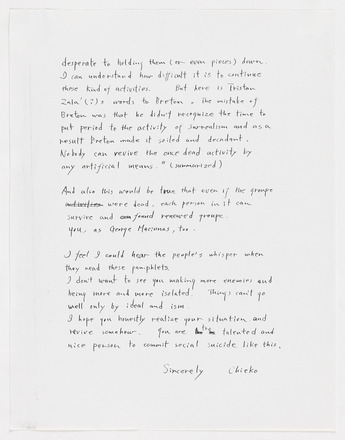 desperate to holding them (or even pieces) down.
I can understand how difficult it is to continue
these kind of activities. But here is Tristan
Zala'(?)s words to Breton. "The mistake of
Breton was that he didn't recognize the time to
put period to the activity of surrealism and as a
result Breton made it soiled and decadant.
Nobody can revive the once dead activity by
any artificial means." (summarized)
And also this would be true that even if the groupe
were dead, each person in it can
survive and found renewed groupe.
You, as George Maciunas, too.
I feel I could hear the people's whisper when
they read these pamphlets.
I don't want to see you making more enemies and
being more and more isolated. Things can't go
well only by ideal and ism.
I hope you honestly realize your situation and
revive somehow. You are talented and
nice person to commit social suicide like this.
Sincerely Chieko